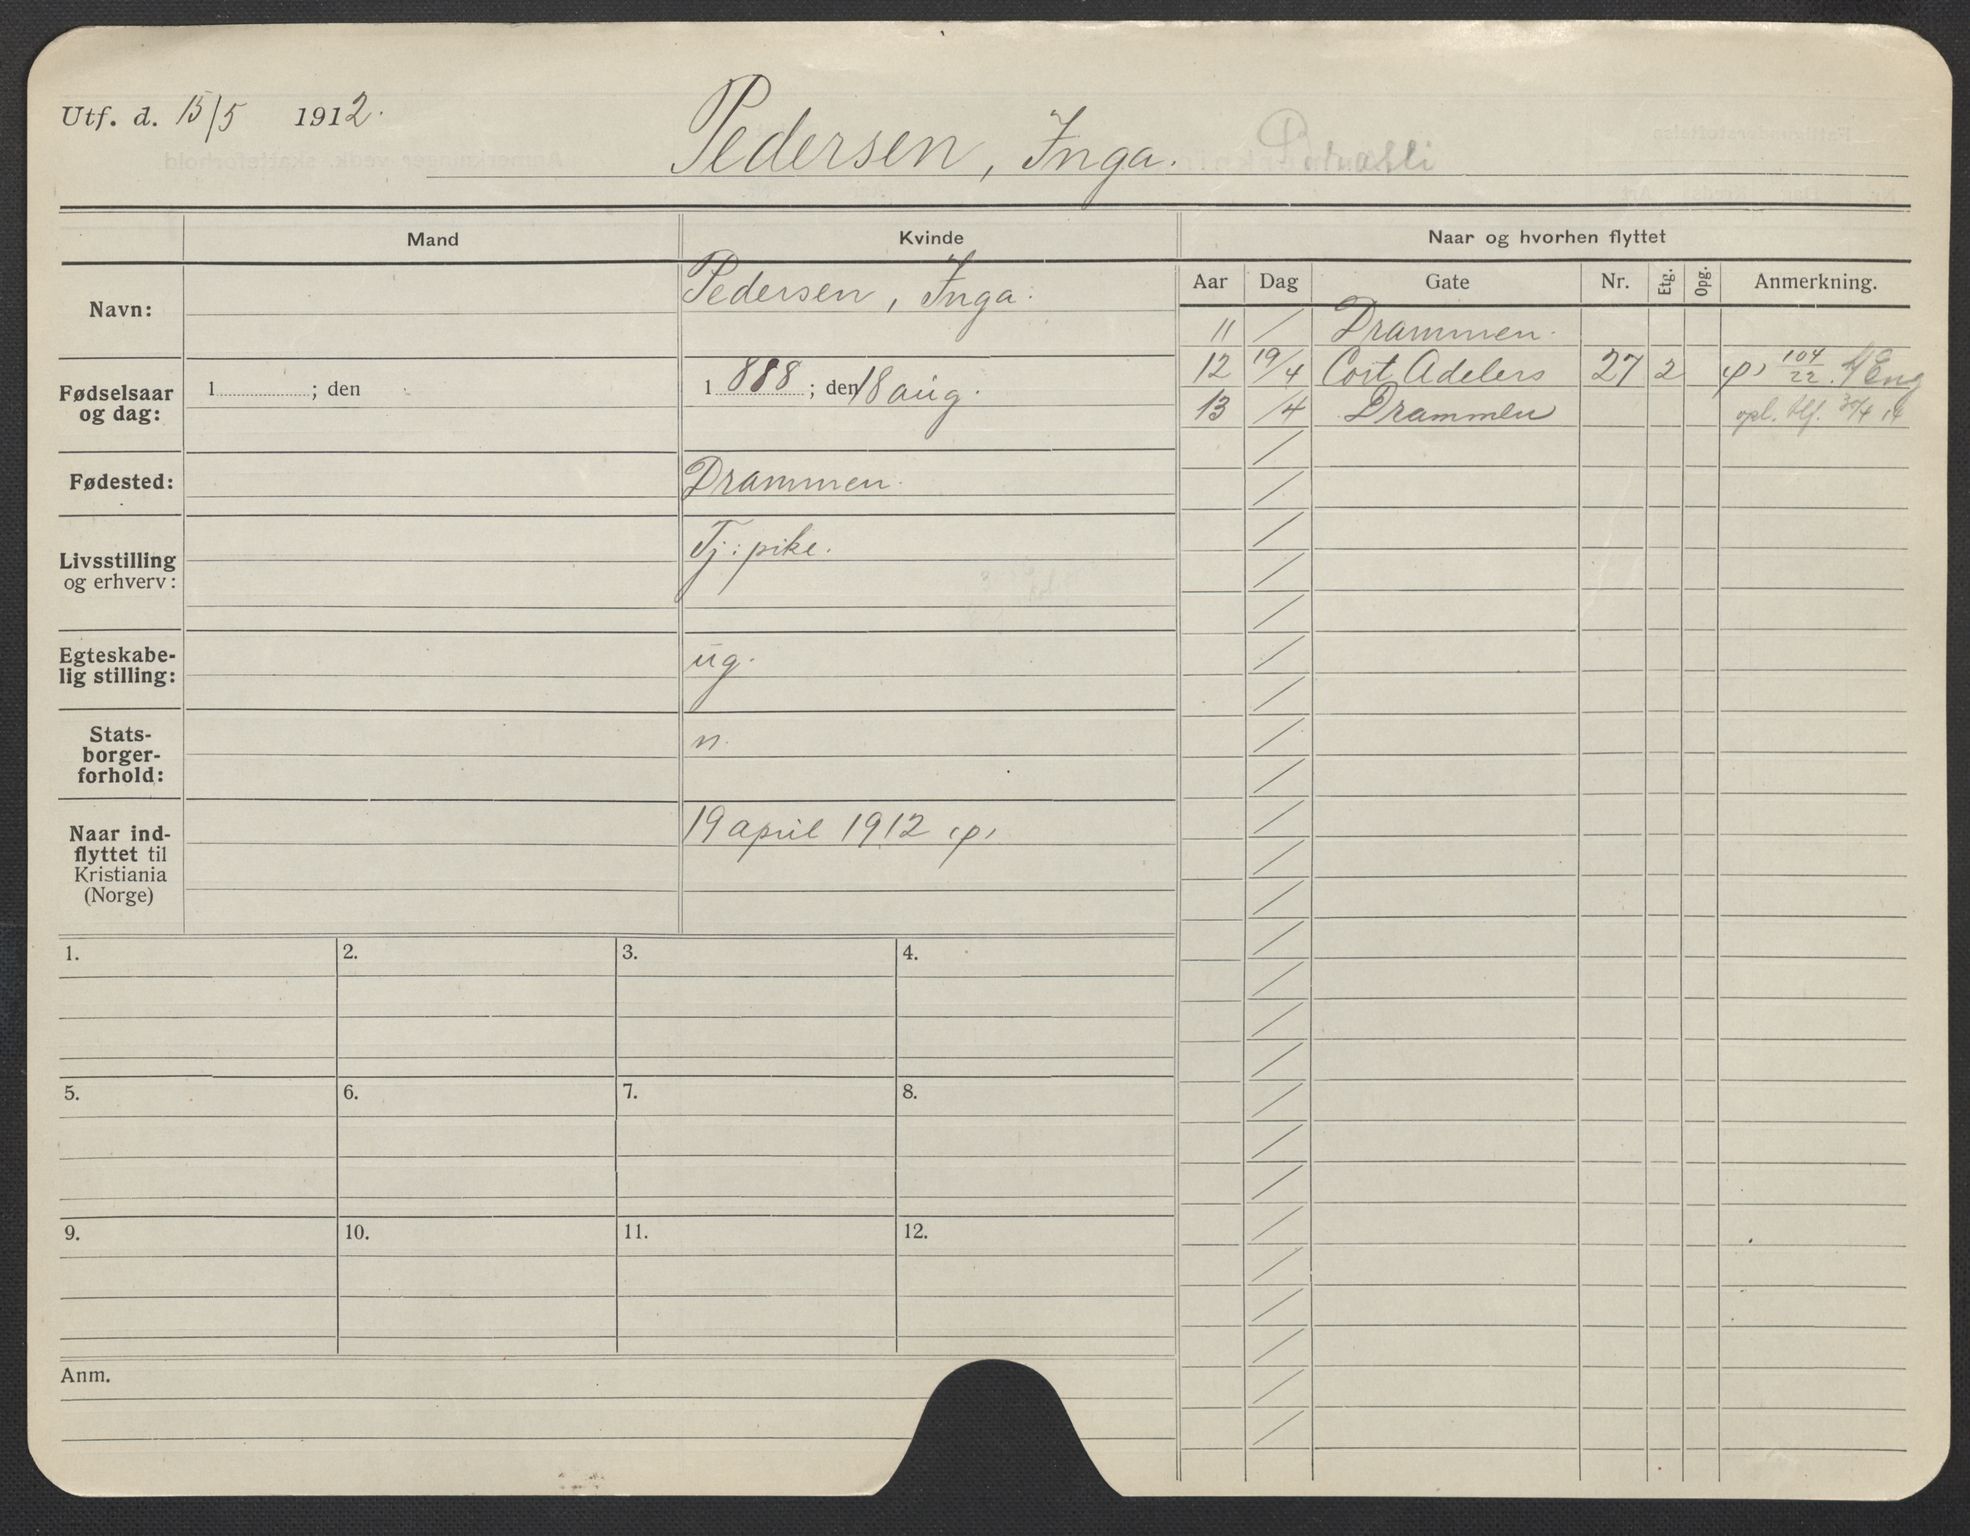 Utf. d. 15/5 1912.
Pedersen, Inga.
Mand Kvinde Naar og hvorhen flyttet
Aar Dag Gate Nr. Etg. Opg. Anmerkning.
Navn: Pedersen, Inga.
11 / Drammen.
12 19/4 Cort Adelers 27 2 104/22 Eng
13 /4 Drammen opl. 30/4 14
Fødselsaar
og dag:
1 ; den
1 888 ; den 18 aug.
Fødested: Drammen.
Livsstilling
og erhverv:
Tj: pike.
Egteskabe-
lig stilling:
ug.
Stats-
borger-
forhold:
n.
Naar ind-
flyttet til
Kristiania
(Norge)
19 april 1912
1. 2. 3. 4.
5. 6. 7. 8.
9. 10. 11. 12.
Anm.